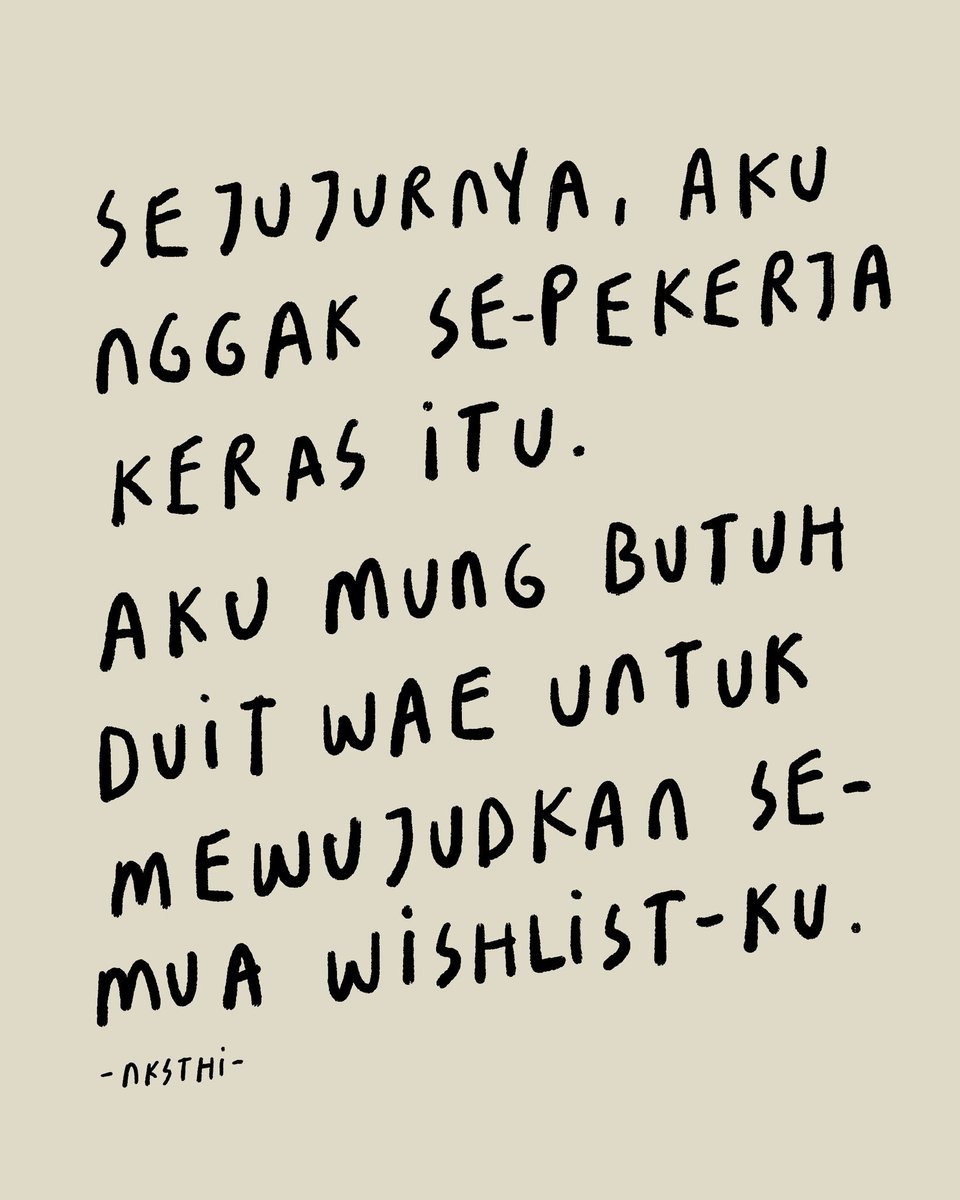 SEJUJURNYA, AKU
NGGAK SE-PEKERJA
KERAS ITU.
AKU MUNG BUTUH
DUIT WAE UNTUK
MEWUJUDKAN SE-
MUA WISHLIST-KU.
-NKSTHI-